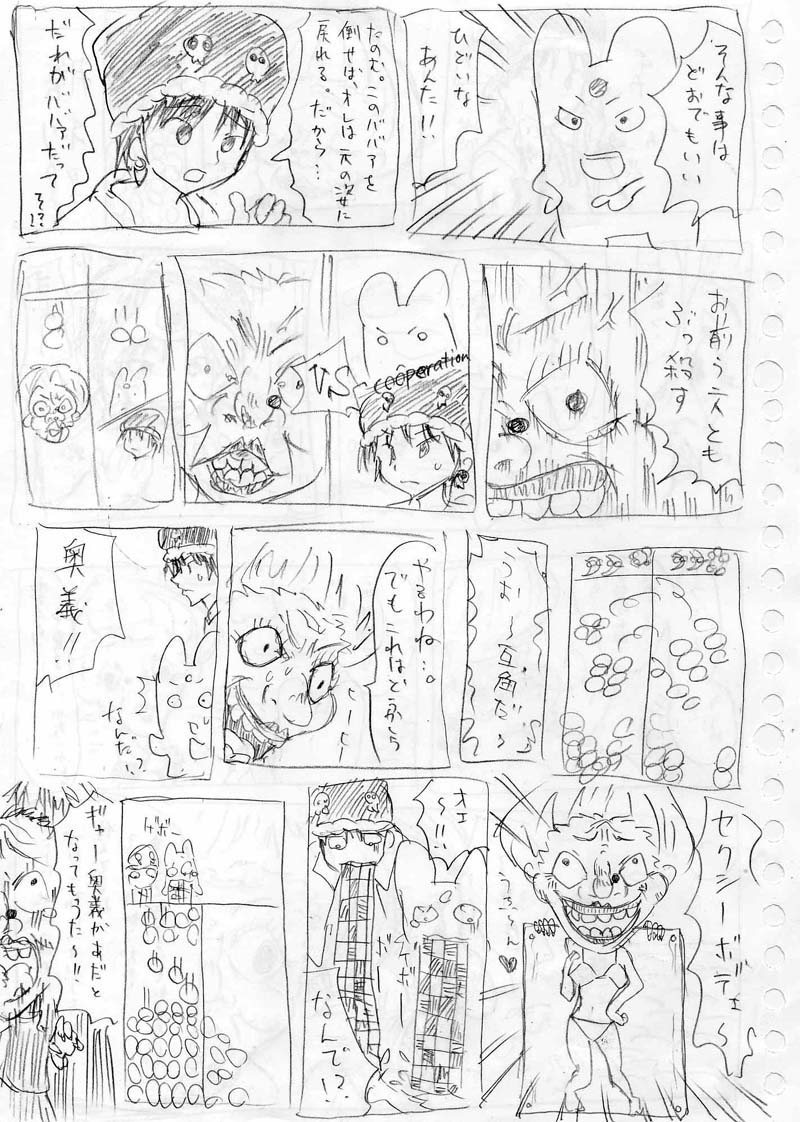 そんな事は
どおでもいい
ひどいな
あんた!!
たのむ。このババアを
倒せば、オレは元の姿に
戻れる。だから…
だれがババアだって
そ!?
お前う二人とも
ぶっ殺す
VS
cooperation
うお〜互角だう
やるわね…。
でもこれはどうかしら
奥義!!
なんだ!?
セクシーボディ〜
うふ〜ん♥
オェ
〜!!
ゲボー
ボー
なんで!?
ゲボー
ギャー奥義があだと
なってもうた〜!!